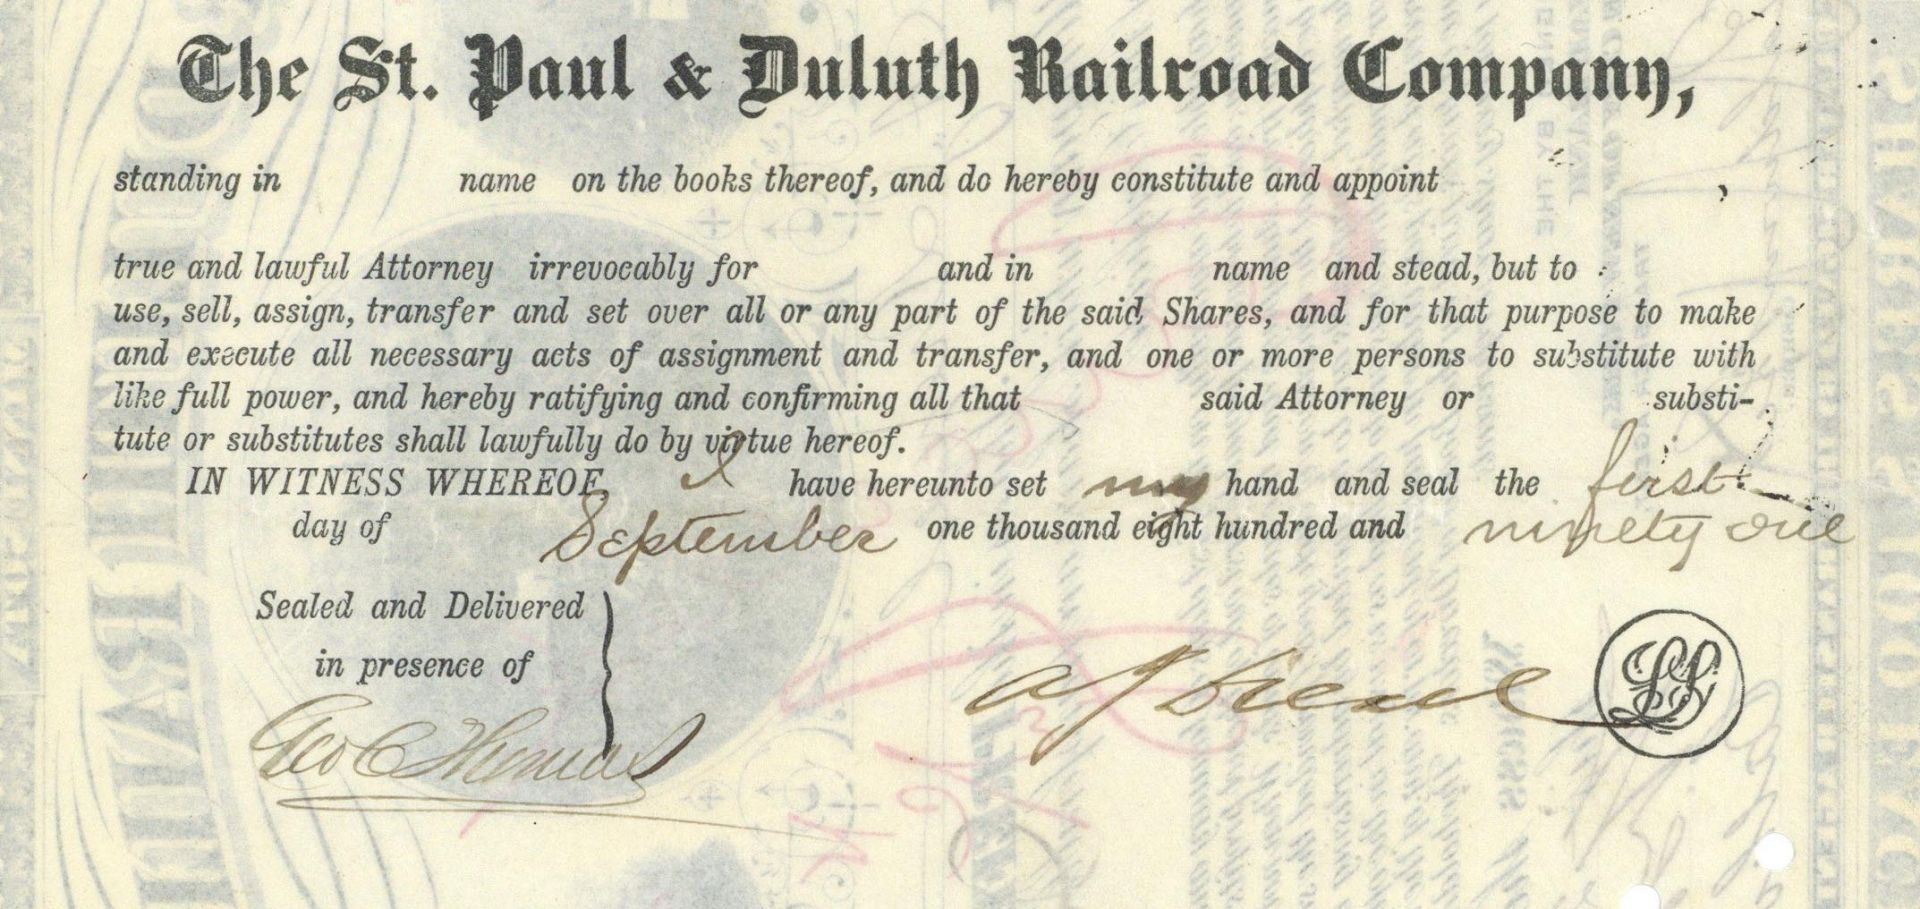 The St. Paul & Duluth Railroad Company,
standing in name on the books thereof, and do hereby constitute and appoint ,
true and lawful Attorney irrevocably for and in name and stead, but to
use, sell, assign, transfer and set over all or any part of the said Shares, and for that purpose to make
and execute all necessary acts of assignment and transfer, and one or more persons to substitute with
like full power, and hereby ratifying and confirming all that said Attorney or substi-
tute or substitutes shall lawfully do by virtue hereof.
IN WITNESS WHEREOF, I have hereunto set my hand and seal the first
day of September one thousand eight hundred and ninety one
Sealed and Delivered
in presence of
Geo C Thomas
LS